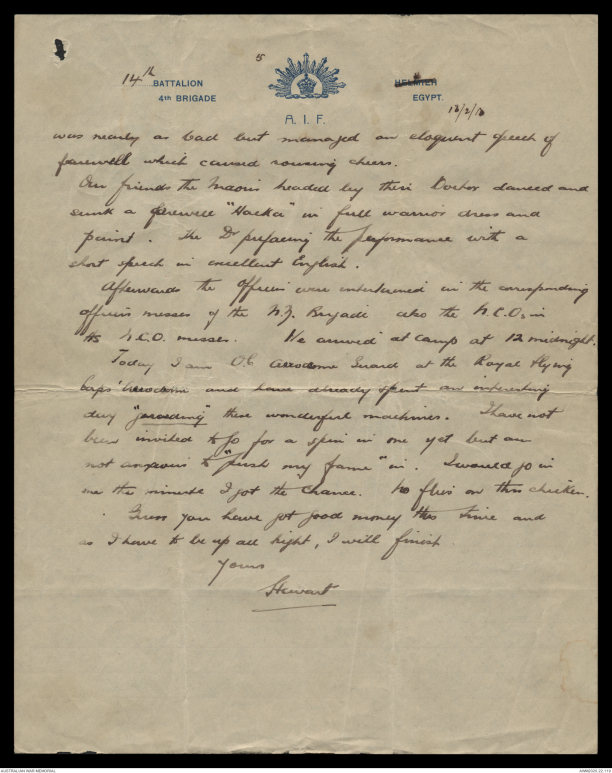 5
14th BATTALION
4th BRIGADE
HELMIEH
EGYPT.
A. I. F.
was nearly as bad but managed an eloquent speech of
farewell which caused rousing cheers.
Our friends the Maoris headed by their Doctor danced and
sunk a farewell "Hacka" in full warrior dress and
paint. The Dr prefacing the performance with a
short speech in excellent English.
Afterwards the Officers were entertained in the corresponding
officers messes of the N.Z. Brigade also the N.C.Os in
the N.C.O. messes. We arrived at camp at 12 midnight.
Today I am O/C Aerodome Guard at the Royal Flying
Corps' Aerodome and have already spent an interesting
day "guarding" these wonderful machines. I have not
been invited to go for a spin in one yet but am
not anxious to "push my frame" in. I would go in
one the minute I got the chance. No flies on this chicken.
Guess you have got good money this time and
as I have to be up all night, I will finish.
Yours
Stewart
AUSTRALIAN WAR MEMORIAL